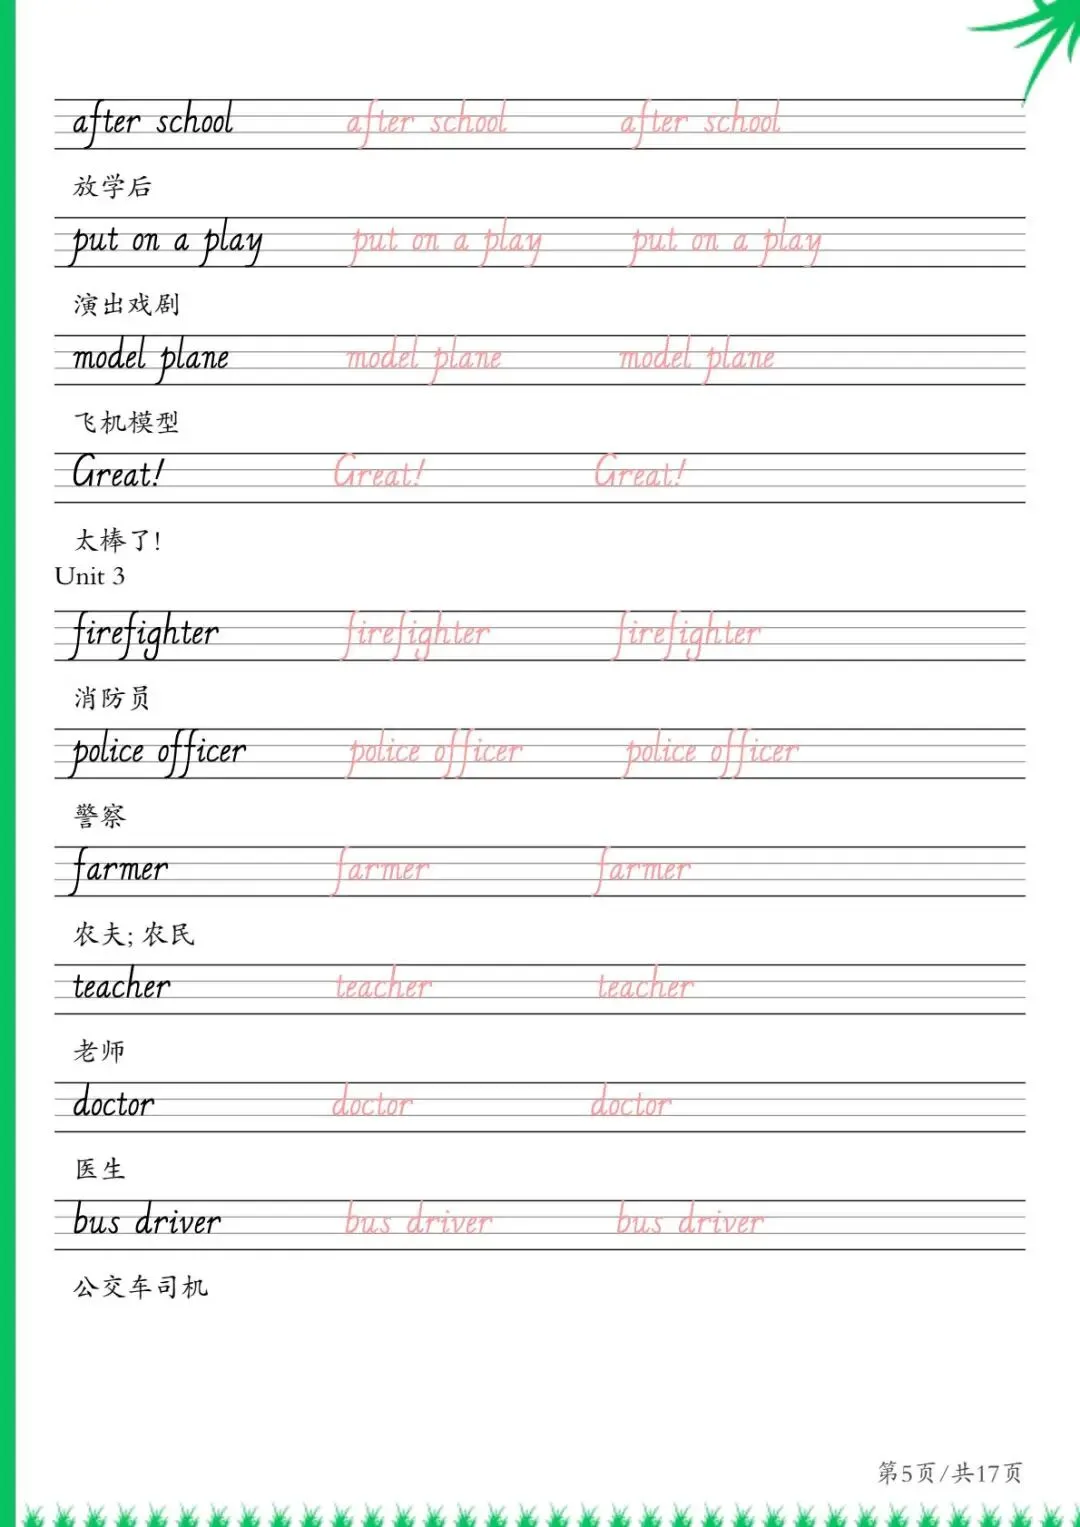 after school after school after school
放学后
put on a play put on a play put on a play
演出戏剧
model plane model plane model plane
飞机模型
Great! Great! Great!
太棒了!
Unit 3
firefighter firefighter firefighter
消防员
police officer police officer police officer
警察
farmer farmer farmer
农夫; 农民
teacher teacher teacher
老师
doctor doctor doctor
医生
bus driver bus driver bus driver
公交车司机
第5页/共17页